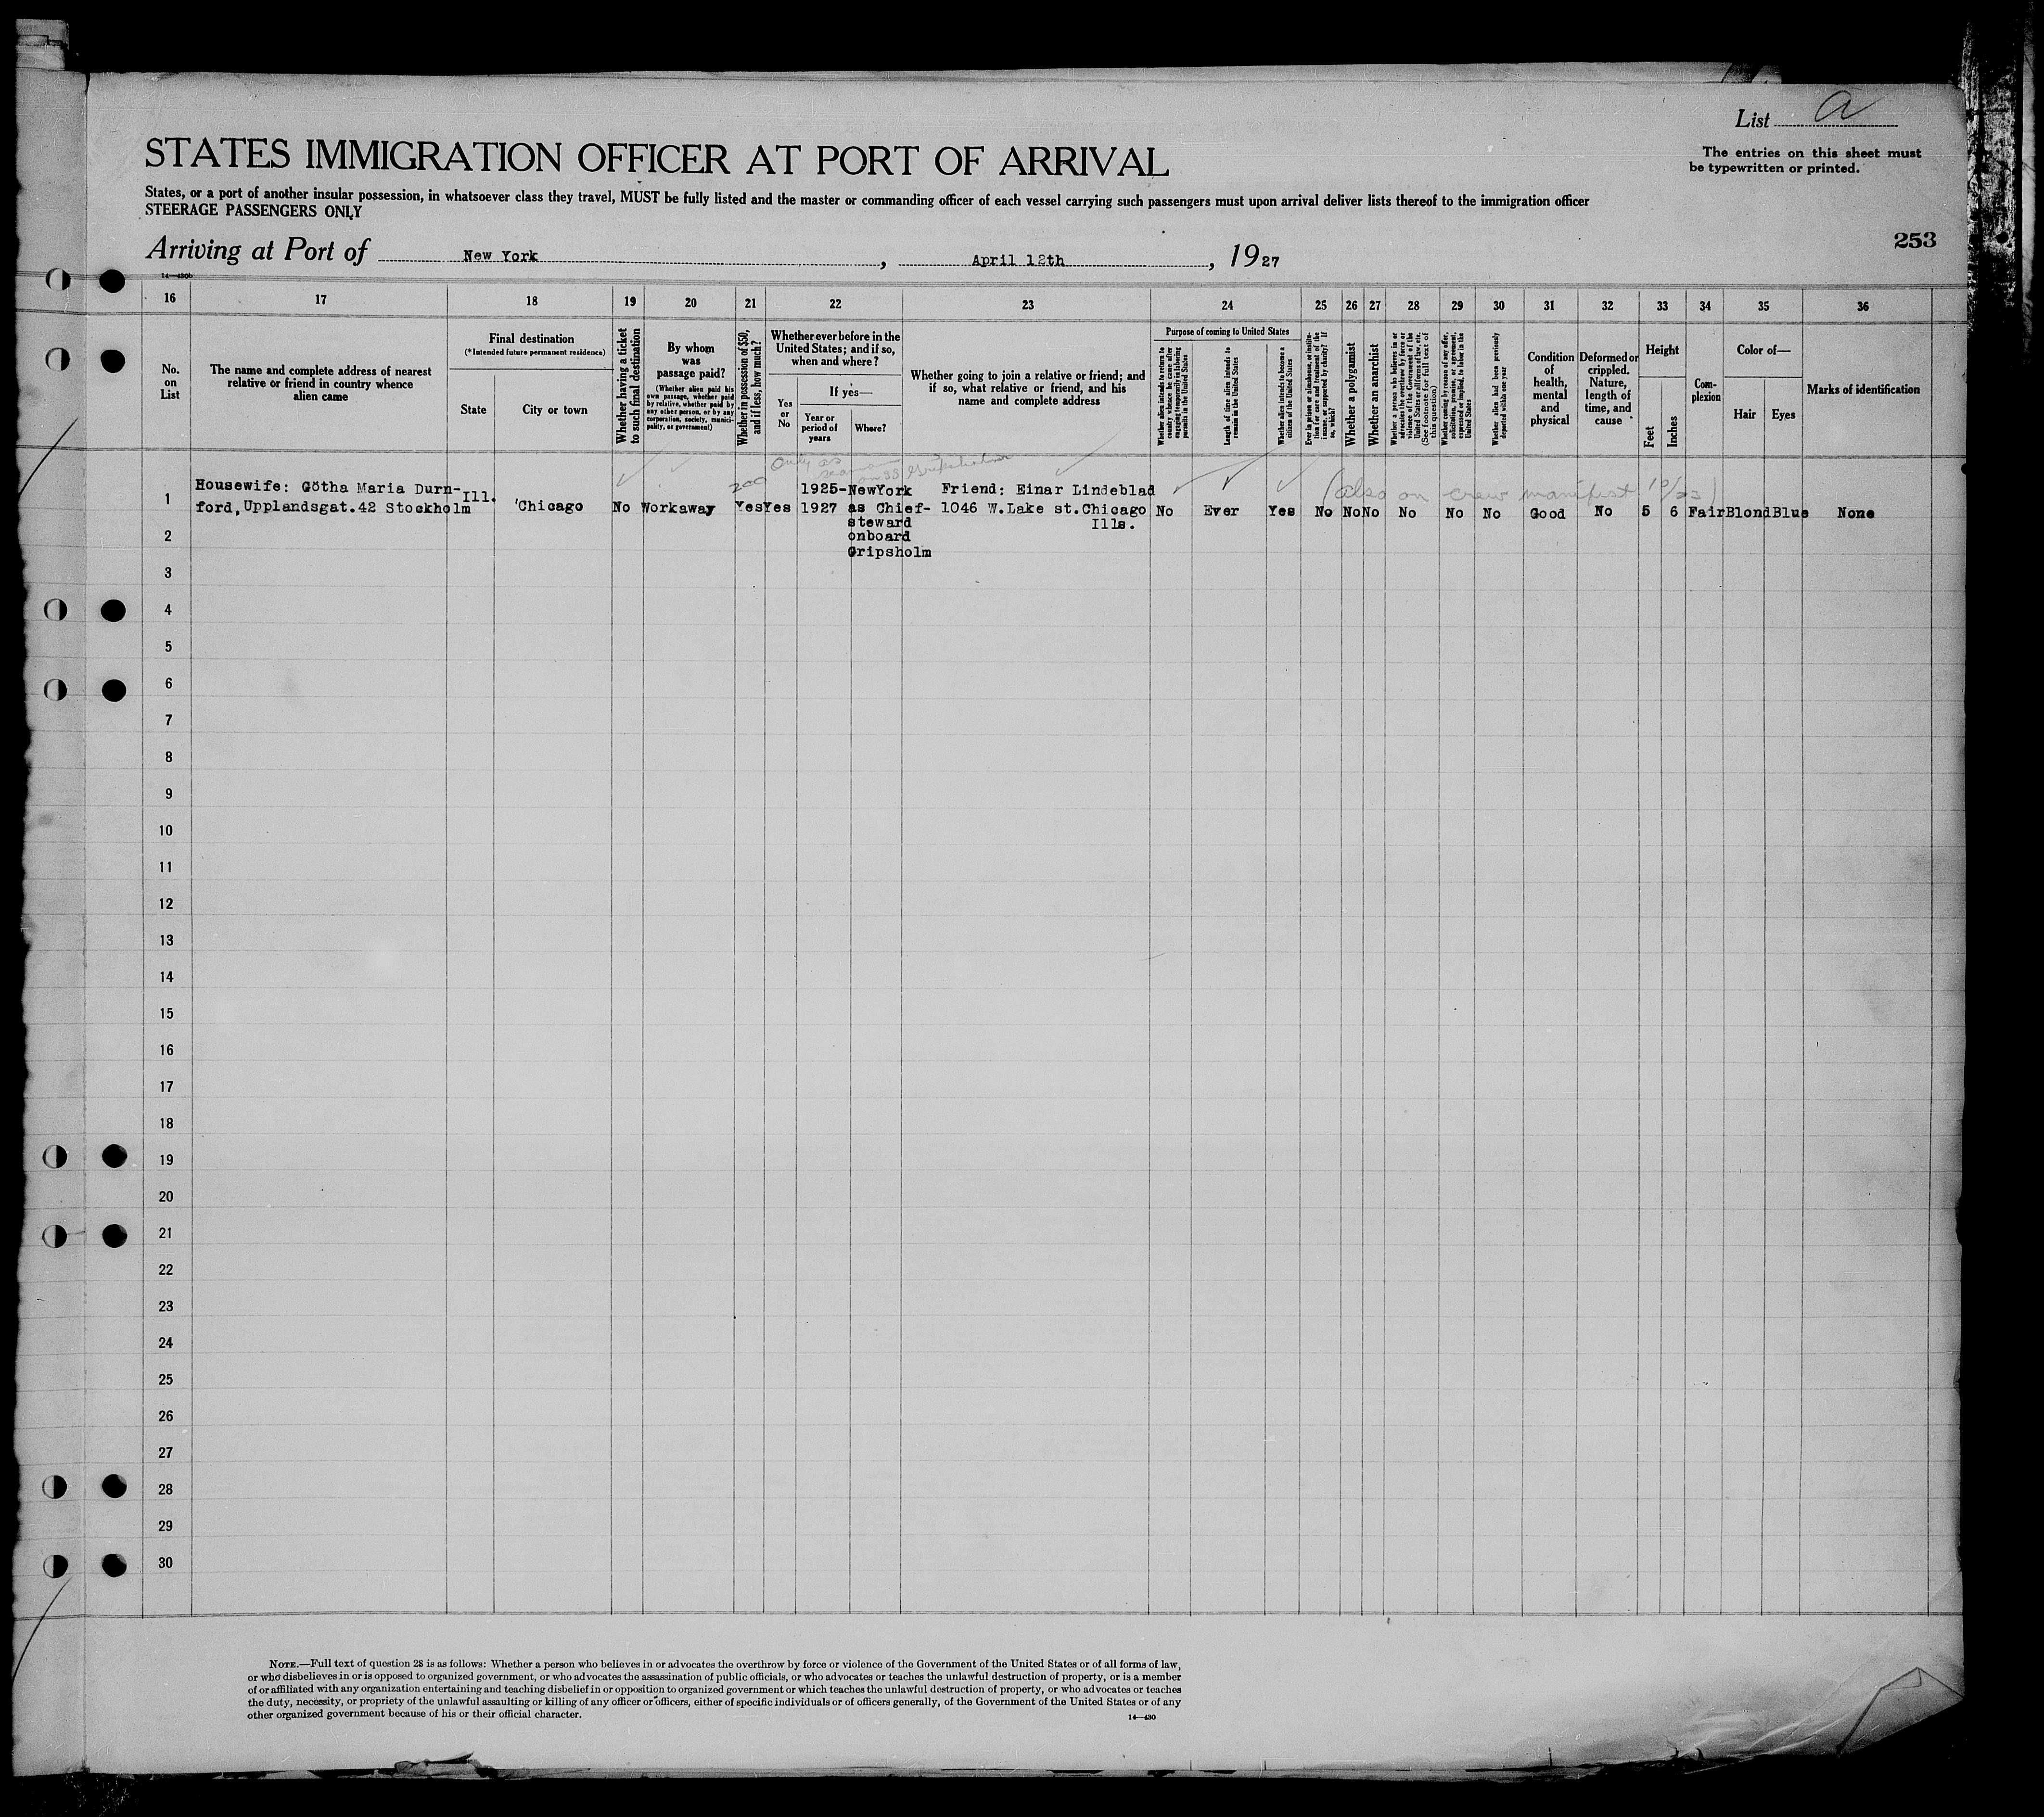 List a
STATES IMMIGRATION OFFICER AT PORT OF ARRIVAL
The entries on this sheet must
be typewritten or printed.
States, or a port of another insular possession, in whatsoever class they travel, MUST be fully listed and the master or commanding officer of each vessel carrying such passengers must upon arrival deliver lists thereof to the immigration officer
STEERAGE PASSENGERS ONLY
253
Arriving at Port of New York, April 12th, 1927
14—430b
16 17 18 19 20 21 22 23 24 25 26 27 28 29 30 31 32 33 34 35 36
No.
on
List
The name and complete address of nearest
relative or friend in country whence
alien came
Final destination
(*Intended future permanent residence)
State
City or town
Whether having a ticket
to such final destination
By whom
was
passage paid?
(Whether alien paid his
own passage, whether paid
by relative, whether paid by
any other person, or by any
corporation, society, munici-
pality, or government)
Whether in possession of $50,
and if less, how much?
Whether ever before in the
United States; and if so,
when and where?
Yes
or
No
If yes—
Year or
period of
years
Where?
Whether going to join a relative or friend; and
if so, what relative or friend, and his
name and complete address
Purpose of coming to United States
Whether alien intends to return to
country whence he came after
engaging temporarily in laboring
pursuits in the United States
Length of time alien intends to
remain in the United States
Whether alien intends to become a
citizen of the United States
Ever in prison or almshouse, or institu-
tion for care and treatment of the
insane, or supported by charity? If
so, which?
Whether a polygamist
Whether an anarchist
Whether a person who believes in or
advocates the overthrow by force or
violence of the Government of the
United States or all forms of law, etc.
(See footnote for full text of
this question)
Whether coming by reason of any offer,
solicitation, promise, or agreement,
expressed or implied, to labor in the
United States
Whether alien had been previously
deported within one year
Condition
of
health,
mental
and
physical
Deformed or
crippled.
Nature,
length of
time, and
cause
Height
Feet
Inches
Com-
plexion
Color of—
Hair
Eyes
Marks of identification
Only as
seaman
on SS Gripsholm
200
(also on crew manifest 10/23)
1 Housewife: Götha Maria Durn-
ford, Upplandsgat. 42 Stockholm
Ill. Chicago No Workaway Yes Yes
1925-
1927
NewYork
as Chief-
steward
onboard
Gripsholm
Friend: Einar Lindeblad
1046 W.Lake st.Chicago
Ills.
No Ever Yes No No No No No No Good No 5 6 Fair Blond Blue None
2
3
4
5
6
7
8
9
10
11
12
13
14
15
16
17
18
19
20
21
22
23
24
25
26
27
28
29
30
NOTE.—Full text of question 28 is as follows: Whether a person who believes in or advocates the overthrow by force or violence of the Government of the United States or of all forms of law,
or who disbelieves in or is opposed to organized government, or who advocates the assassination of public officials, or who advocates or teaches the unlawful destruction of property, or is a member
of or affiliated with any organization entertaining and teaching disbelief in or opposition to organized government or which teaches the unlawful destruction of property, or who advocates or teaches
the duty, necessity, or propriety of the unlawful assaulting or killing of any officer or officers, either of specific individuals or of officers generally, of the Government of the United States or of any
other organized government because of his or their official character.
14—430